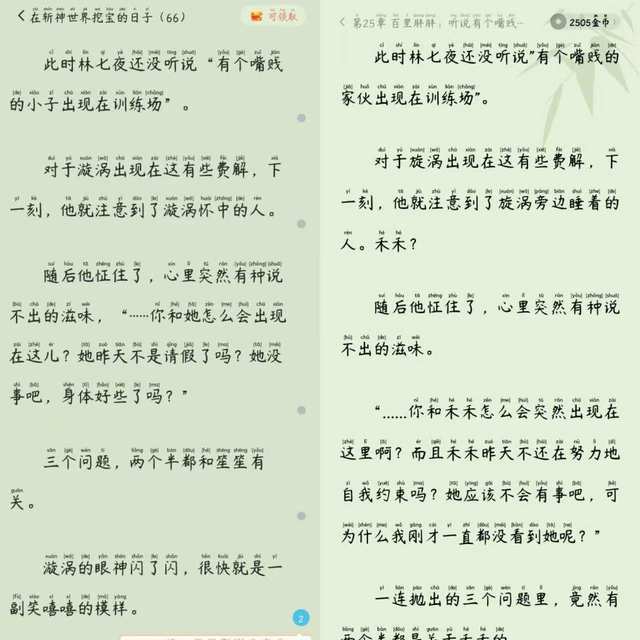 在斩神世界挖宝的日子（66）
可领取
此时林七夜还没听说“有个嘴贱
的小子出现在训练场”。
对于漩涡出现在这有些费解，下
一刻，他就注意到了漩涡怀中的人。
随后他怔住了，心里突然有种说
不出的滋味，“……你和她怎么会出现
在这儿？她昨天不是请假了吗？她没
事吧，身体好些了吗？”
三个问题，两个半都和笙笙有
关。
漩涡的眼神闪了闪，很快就是一
副笑嘻嘻的模样。
2
第25章 百里胖胖：听说有个嘴贱…
2505金币
此时林七夜还没听说“有个嘴贱的
家伙出现在训练场”。
对于旋涡出现在这有些费解，下
一刻，他就注意到了旋涡旁边睡着的
人。禾禾？
随后他怔住了，心里突然有种说
不出的滋味。
“……你和禾禾怎么会突然出现在
这里啊？而且禾禾昨天不还在努力地
自我约束吗？她应该不会有事吧，可
为什么我刚才一直都没看到她呢？”
一连抛出的三个问题里，竟然有
两个半都是关于禾禾的